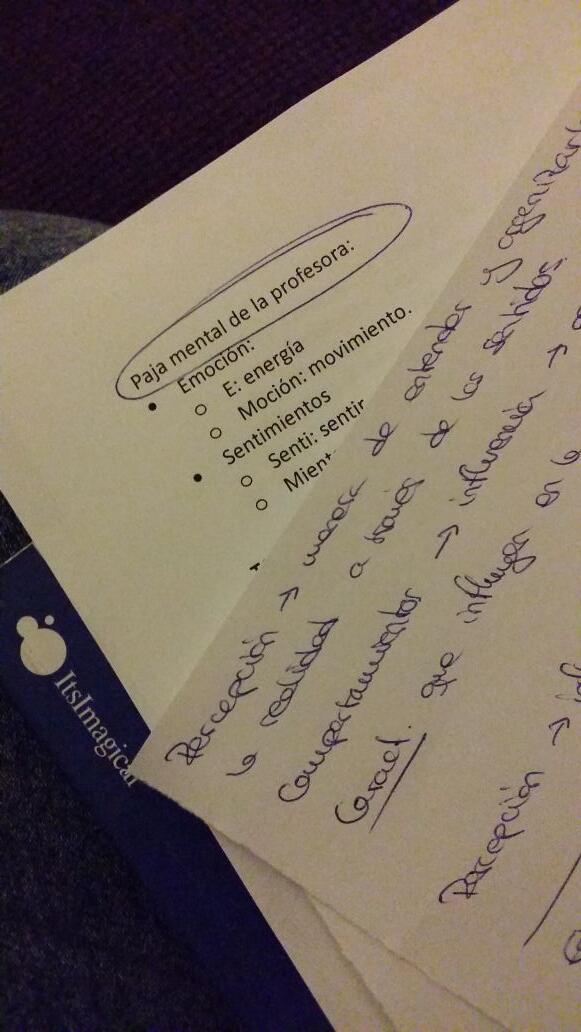 Paja mental de la profesora:
Emoción:
E: energía
Moción: movimiento.
Sentimientos
Senti: sentir
Mient
Percepción → manera de entender y organizar
la realidad a través de los sentidos.
Comportamientos → influencia →
que influyen en la
Percepción →
ItsImagical